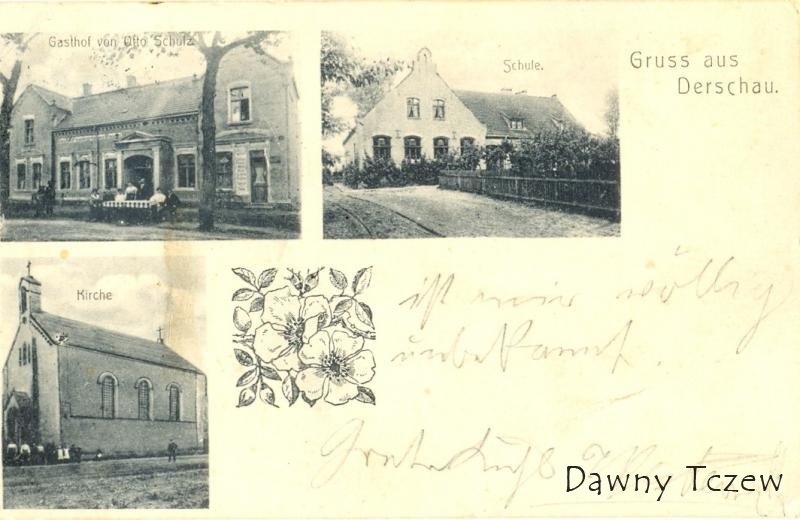 Gasthof von Otto Schulz
Schule.
Gruss aus
Derschau.
Kirche
ist mir völlig
unbekannt.
Dawny Tczew